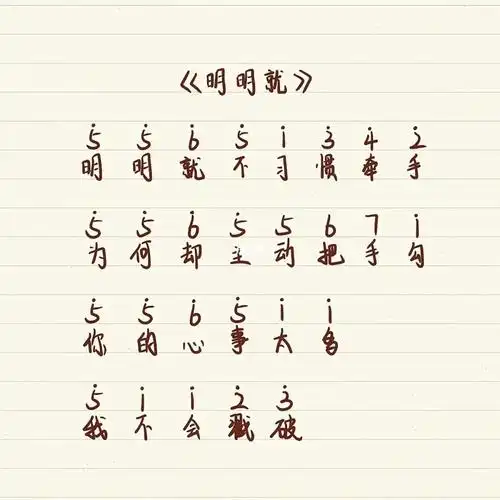 《明明就》
5̇ 5̇ 6̇ 5̇ 1̇ 3̇ 4̇ 2̇
明 明 就 不 习 惯 牵 手
5̇ 5̇ 6̇ 5̇ 5 6 7 1̇
为 何 却 主 动 把 手 勾
5̇ 5̇ 6̇ 5̇ 1̇ 1̇
你 的 心 事 太 多
5̇ 1̇ 1̇ 2̇ 3̇
我 不 会 戳 破